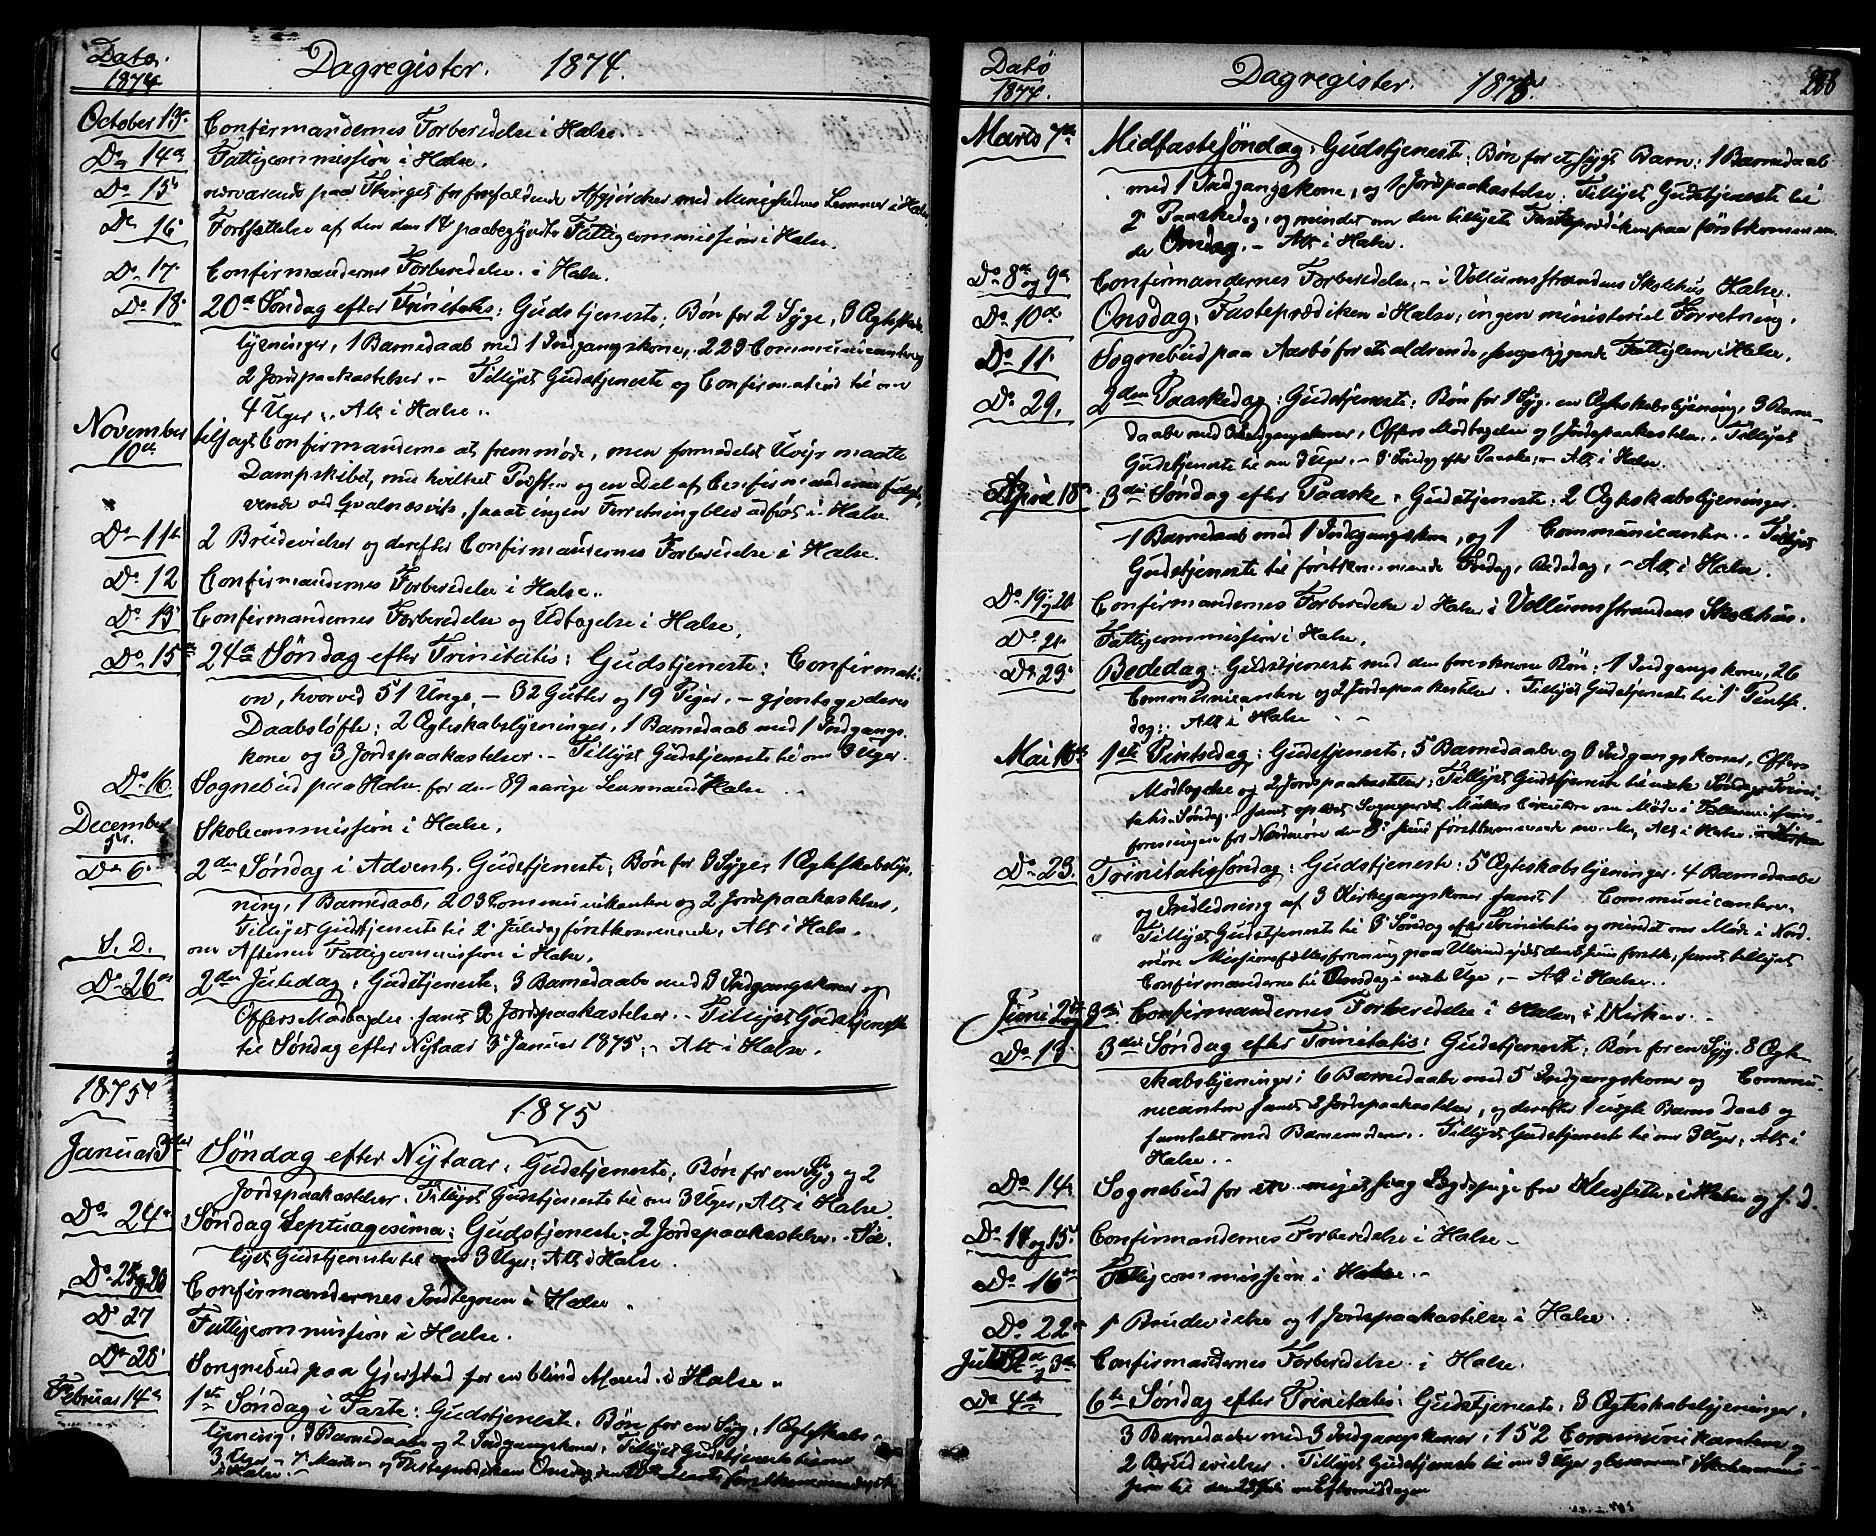 Dato. 1874 Dagregister. 1874.
October 13. Confirmandernes Forberedelse i Halse.
Do 14de Fattigcommission i Halse.
Do 15 nærværende paa Thinget for forefaldende med Lemmer i Halse
Do 16 Fortsættelse af den den 14 paabegyndte Fattigcommission i Halse.
Do 17. Confirmandernes Forberedelse i Halse.
Do 18. 20de Søndag efter Trinitatis: Gudstjeneste; Bøn for 2 Syge, 3 Ægteskabs
lysninger, 1 Barnedaab med 1 Indgangskone, 223 Communicantere og
2 Jordpaakastelser. – Tillyst Gudstjeneste og Confirmation til om
4 Uger. Alt i Halse.
November 10de tilsagt Confirmanderne at fremmøde, men formedelst Uveir maatte
Dampskibet, med hvilket Præsten og en Del af Confirmanderne fulgte,
vende ved Qvalnæsvik, saaat ingen Forretning blev udført i Halse.
Do 11te 2 Brudevielser og derefter Confirmandernes Forberedelse i Halse.
Do 12 Confirmandernes Forberedelse i Halse.
Do 13 Confirmandernes Forberedelse og Udtagelse i Halse.
Do 15de 24de Søndag efter Trinitatis: Gudstjeneste: Confirmati-
on, hvorved 51 Unge, – 32 Gutter og 19 Piger, – gjentoge deres
Daabsløfte; 2 Ægteskabslysninger, 1 Barnedaab med 1 Indgangs
kone og 3 Jordpaakastelser. – Tillyst Gudstjeneste til om 3 Uger.
Do 16. Sognebud paa Halse for den 89 aarige Lensmand Halse
December 5te. Skolecommission i Halse.
Do 6. 2den Søndag i Advent. Gudstjeneste; Bøn for 3 Syge; 1 Ægteskabslys-
ning, 1 Barnedaab, 203 Communikantere og 2 Jordpaakastelser,
Tillyst Gudstjeneste til 2 Juledag førstkommende, Alt i Halse.
S. D. om Aftenen Fattigcommission i Halse.
Do 26de 2den Juledag: Gudstjeneste; 3 Barnedaabe med 3 Indgangskoner og
Offers Modtagelse samt 2 Jordpaakastelser. – Tillyst Gudstjeneste
til Søndag efter Nytaar 3 Januar 1875; – Alt i Halse.
1875 1875
Januar 3die Søndag efter Nytaar: Gudstjeneste; Bøn for en Syg og 2
Jordpaakastelser. Tillyst Gudstjeneste til om 3 Uger, Alt i Halse.
Do 24de Søndag Septuagesima: Gudstjeneste; 2 Jordpaakastelser. – Til-
lyst Gudstjeneste til om 3 Uger; Alt i Halse.
Do 25 og 26 Confirmandernes Indtegnen i Halse.
Do 27 Fattigcommission i Halse.
Do 28 Songnebud paa Gjerstad for en blind Mand i Halse.
Februar 14de 1ste Søndag i Faste: Gudstjeneste; Bøn for en Syg, 1 Ægteskabs-
lysning, 3 Barnedaabe og 2 Indgangskoner; Tillyst Gudstjeneste til om
3 Uger – 7 Marts – og Fasteprædiken Onsdag den 10de førstkommende, Alt
i Halse. –
Dato 1874. Dagregister. 1875. 288
Marts 7de Midfastesøndag: Gudstjeneste; Bøn for et sygt Barn; 1 Barnedaab
med 1 Indgangskone, og 1 Jordpaakastelse; Tillyst Gudstjeneste til
2 Paaskedag, og mindet om den tillyste Fasteprædiken paa førstkommen
de Onsdag. – Alt i Halse.
Do 8de og 9de Confirmandernes Forberedelse, – i Vollumsstrandens Skolehus Halse.
Do 10de Onsdag: Fasteprædiken i Halse; ingen ministeriel Forretning.
Do 11. Sognebud paa Aasbø for et aldrende, sengeliggende Fattiglem i Halse.
Do 29. 2den Paaskedag: Gudstjeneste; Bøn for 1 Syg. en Ægteskabslysning, 3 Barne-
daabe med Indgangskoner, Offers Modtagelse og 1 Jordpaakastelse. Tillyst
Gudstjeneste til om 3 Uger. – 3 Søndag efter Paaske, – Alt i Halse.
April 18de 3die Søndag efter Paaske: Gudstjeneste; 2 Ægteskabslysninger.
1 Barnedaab med 1 Indgangskone, og 1 Communicantere. Tillyst
Gudstjeneste til førstkommende Fredag, Bededag, – Alt i Halse.
Do 19 og 20 Confirmandernes Forberedelse i Halse i Vollumsstrandens Skolehus.
Do 21. Fattigcommission i Halse.
Do 23. Bededag: Gudstjeneste med den foreskrevne Bøn; 1 Indgangskone, 26
Communicantere og 2 Jordpaakastelser. Tillyst Gudstjeneste til 1 Pintse-
dag; Alt i Halse.
Mai 16de 1ste Pintsedag: Gudstjeneste; 5 Barnedaabe og Indgangskoner, Offers
Modtagelse og 2 Jordpaakastelser; Tillyst Gudstjeneste til næste Søndag Trini-
tatis-Søndag. Samt oplæst Sognepræst Møllers Circulære om Møde i
foreningen for Nordmøre den 3 Juni førstkommende Alt i Halse
Do 23. Trinitatissøndag: Gudstjeneste; 5 Ægteskabslysninger. 4 Barnedaabe
og Indledning af 3 Kirkegangskoner samt 1 Communicantere.
Tillyst Gudstjeneste til 3 Søndag efter Trinitatis og mindet om Møde i Nord-
møre Missionsfællesforening paa den Juni førstk., samt tillyst
Confirmanderne til Onsdag i næste Uge, – Alt i Halse.
Juni 2den og 3die Confirmandernes Forberedelse i Halse i Kirken. –
Do 13. 3die Søndag efter Trinitatis: Gudstjeneste; Bøn for en Syg. 8 Ægte-
skabslysninger; 6 Barnedaabe med 5 Indgangskoner og Commu-
nicantere samt 2 Jordpaakastelser, og derefter 1 uægte Barns Daab og
samtalt med Barnemoderen. Tillyst Gudstjeneste til om 3 Uger; Alt i
Halse.
Do 14. Sognebud for en meget svag fra i Halse og S. D.
Do 14 og 15. Confirmandernes Forberedelse i Halse –
Do 16de Fattigcommission i Halse. –
Do 22de 1 Brudevielse og 1 Jordpaakastelse i Halse.
Juli 2den og 3die Confirmandernes Forberedelse i Halse.
Do 4de 6te Søndag efter Trinitatis: Gudstjeneste; 3 Ægteskabslysninger,
3 Barnedaabe med 3 Indgangskoner; 152 Communikantere og
2 Brudevielser. Tillyst Gudstjeneste til om 3 Uger og
til den Eftermiddagen